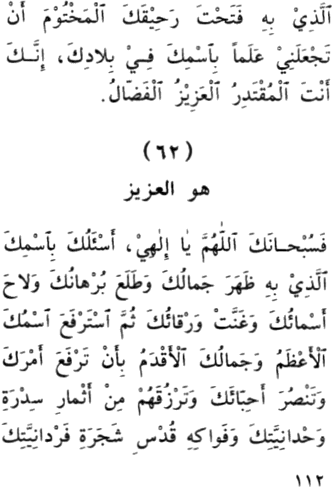 ٱلَّذِيْ بِهِ فَتَحْتَ رَحِيْقَكَ ٱلْمَخْتُوْمَ أَنْ
تَجْعَلَنِيْ عَلَماً بِٱسْمِكَ فِيْ بِلادِكَ، إِنَّكَ
أَنْتَ ٱلْمُقْتَدِرُ ٱلْعَزِيْزُ ٱلْفَضّالُ.
(٦٢)
هو العزيز
فَسُبْحانَكَ ٱللّٰهُمَّ يٰا إِلٰهِيْ، أَسْئَلُكَ بِٱسْمِكَ
ٱلَّذِيْ بِهِ ظَهَرَ جَمالُكَ وَطَلَعَ بُرْهانُكَ وَلاحَ
أَسْمائُكَ وَغَنَّتْ وَرْقائُكَ ثُمَّ ٱسْتَرْفَعَ ٱسْمُكَ
ٱلْأَعْظَمُ وَجَمالُكَ ٱلْأَقْدَمُ بِأَنْ تَرْفَعَ أَمْرَكَ
وَتَنْصُرَ أَحِبّائَكَ وَتَرْزُقَهُمْ مِنْ أَثْمارِ سِدْرَةِ
وَحْدانِيَّتِكَ وَفَواكِهِ قُدْسِ شَجَرَةِ فَرْدانِيَّتِكَ
١١٢